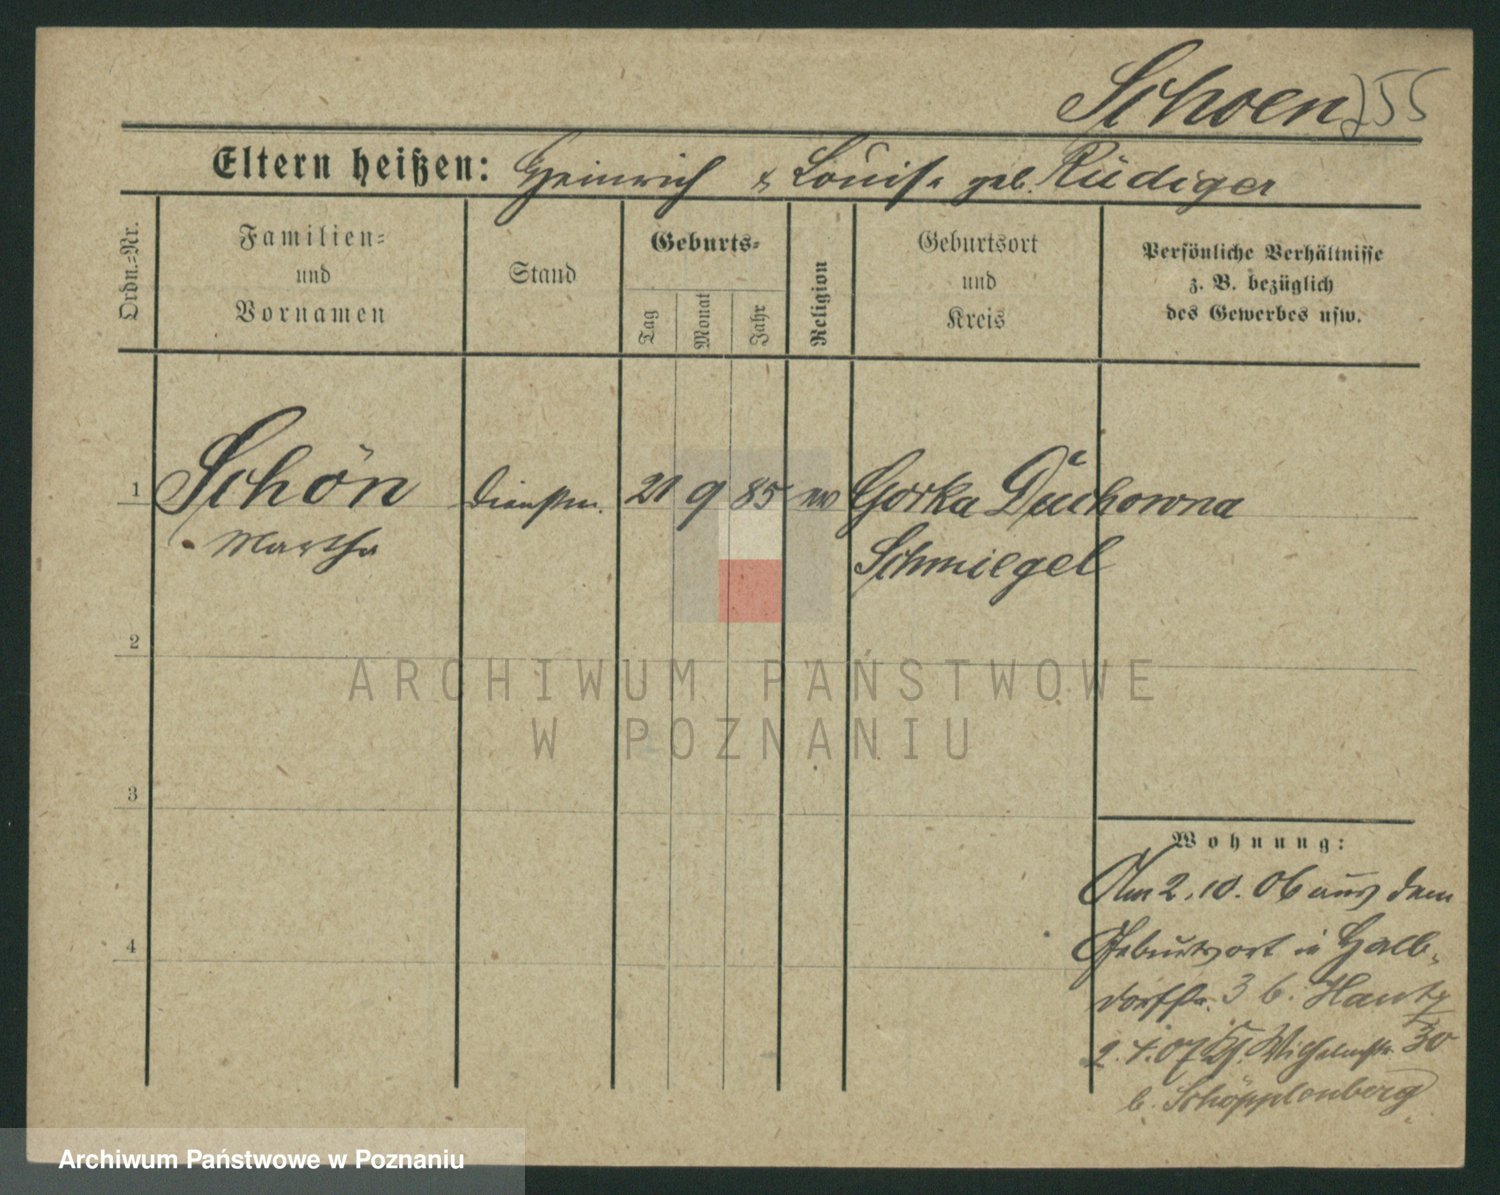 Schoen 755
Eltern heißen: Heinrich & Louise geb. Rüdiger
Ordn.-Nr.
Familien-
und
Vornamen
Stand
Geburts-
Tag
Monat
Jahr
Religion
Geburtsort
und
Kreis
Persönliche Verhältnisse
z. B. bezüglich
des Gewerbes usw.
1 Schön Dienstm. 21 9 85 ev Gorka Duchowna
Martha Schmiegel
2
ARCHIWUM PAŃSTWOWE
W POZNANIU
3
Wohnung:
Am 2.10.06 aus dem
4
Geburtsort in Halb-
dorfstr. 3 b. Hantz
2.4.07 Wilhelmstr. 30
b. Schöpplenberg
Archiwum Państwowe w Poznaniu